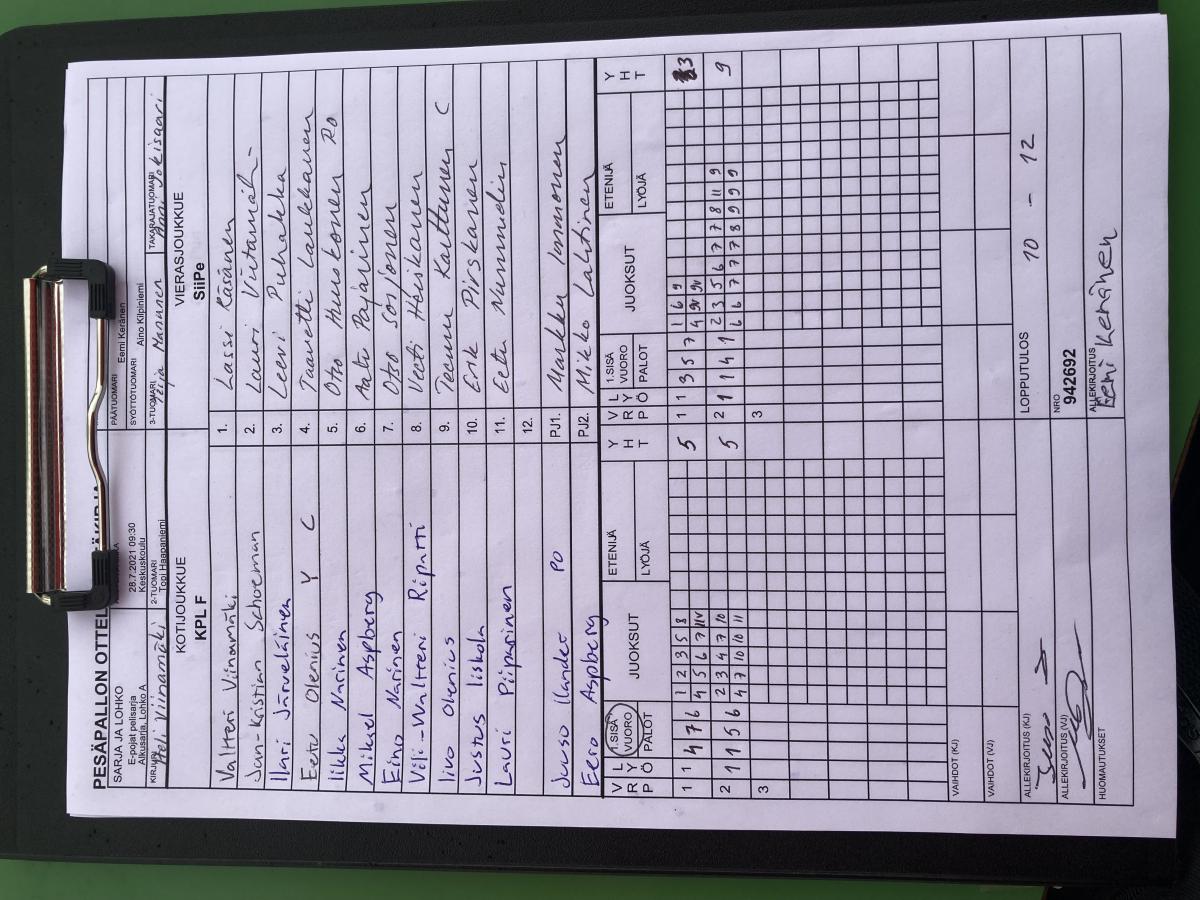 PESÄPALLON OTTEL
SARJA JA LOHKO
E-pojat pelisarja
Alkusarja, Lohko A
28.7.2021 09:30
Keskuskoulu
PÄÄTUOMARI
Eemi Keränen
SYÖTTÖTUOMARI
Aino Kilpiniemi
KIRJURI
Heli Viinamäki
2-TUOMARI
Topi Haapaniemi
3-TUOMARI
Manunen
TAKARAJATUOMARI
Jokisaari
KOTIJOUKKUE
KPL F
VIERASJOUKKUE
SiiPe
Valtteri Viinamäki 1. Lassi Räsänen
Jan-Kristian Schoeman 2. Lauri
Ilari Järveläinen 3. Leevi Puhakka
Eetu Olenius Y C 4. Taavetti Laukkanen
Iikka Narinen 5. Oto Huuskonen RO
Mikael Aspberg 6. Aatu Pajarinen
Eino Narinen 7. Otso Sorjonen
Vili-Waltteri Ripatti 8. Veeti Heiskanen
Iivo Olenius 9. Teemu Kauttunen C
Justus Iiskola 10. Erik Pirskanen
Lauri Piiparinen 11. Eetu Nummelin
12.
Juuso Ilander PO PJ1. Markku Immonen
Eero Aspberg PJ2. Mikko Lahtinen
V L
R Y
P Ö
1.SISÄ
VUORO
PALOT
JUOKSUT
ETENIJÄ
LYÖJÄ
Y
H
T
V L
R Y
P Ö
1.SISÄ
VUORO
PALOT
JUOKSUT
ETENIJÄ
LYÖJÄ
Y
H
T
1 1 4 7 6 1 2 3 5 8 5 1 1 3 5 7 1 6 9 3
4 5 6 7 4
2 1 1 5 6 2 3 4 7 10 5 2 1 1 4 1 2 3 5 6 7 7 8 11 9 9
4 7 10 10 11 6 6 7 7 7 8 9 9 9
3 3
VAIHDOT (KJ)
VAIHDOT (VJ)
ALLEKIRJOITUS (KJ)
LOPPUTULOS 10 - 12
ALLEKIRJOITUS (VJ)
NRO
942692
HUOMAUTUKSET
ALLEKIRJOITUS
Eemi Keränen